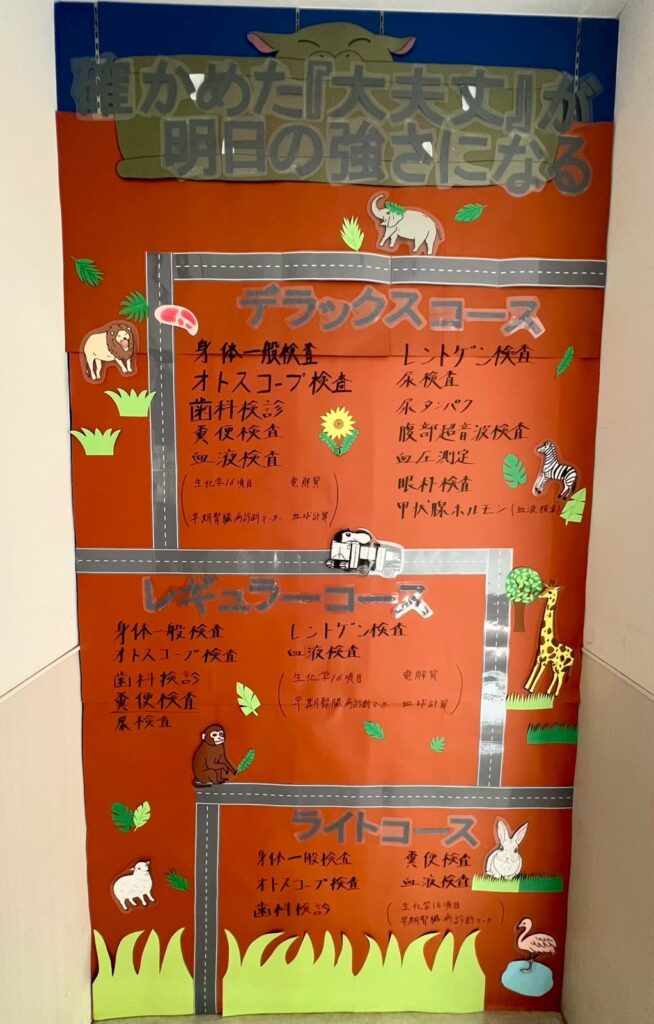 確かめた『大夫丈』が
明日の強さになる
デラックスコース
身体一般検査
オトスコープ検査
歯科検診
糞便検査
血液検査
(生化学16項目 電解質
早期腎臓病診断マーカー 血球計算)
レントゲン検査
尿検査
尿タンパク
腹部超音波検査
血圧測定
眼科検査
甲状腺ホルモン(血液検査)
レギュラーコース
身体一般検査
オトスコープ検査
歯科検診
糞便検査
尿検査
レントゲン検査
血液検査
(生化学16項目 電解質
早期腎臓病診断マーカー 血球計算)
ライトコース
身体一般検査
オトスコープ検査
歯科検診
糞便検査
血液検査
(生化学16項目
早期腎臓病診断マーカー)